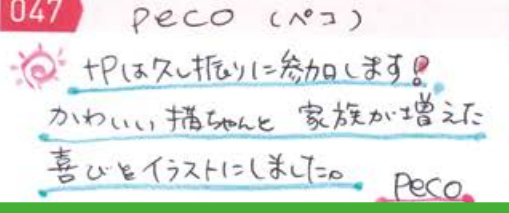 047
peco (ペコ)
+Pは久し振りに参加します!
かわいい猫ちゃんと 家族が増えた
喜びをイラストにしました。
peco